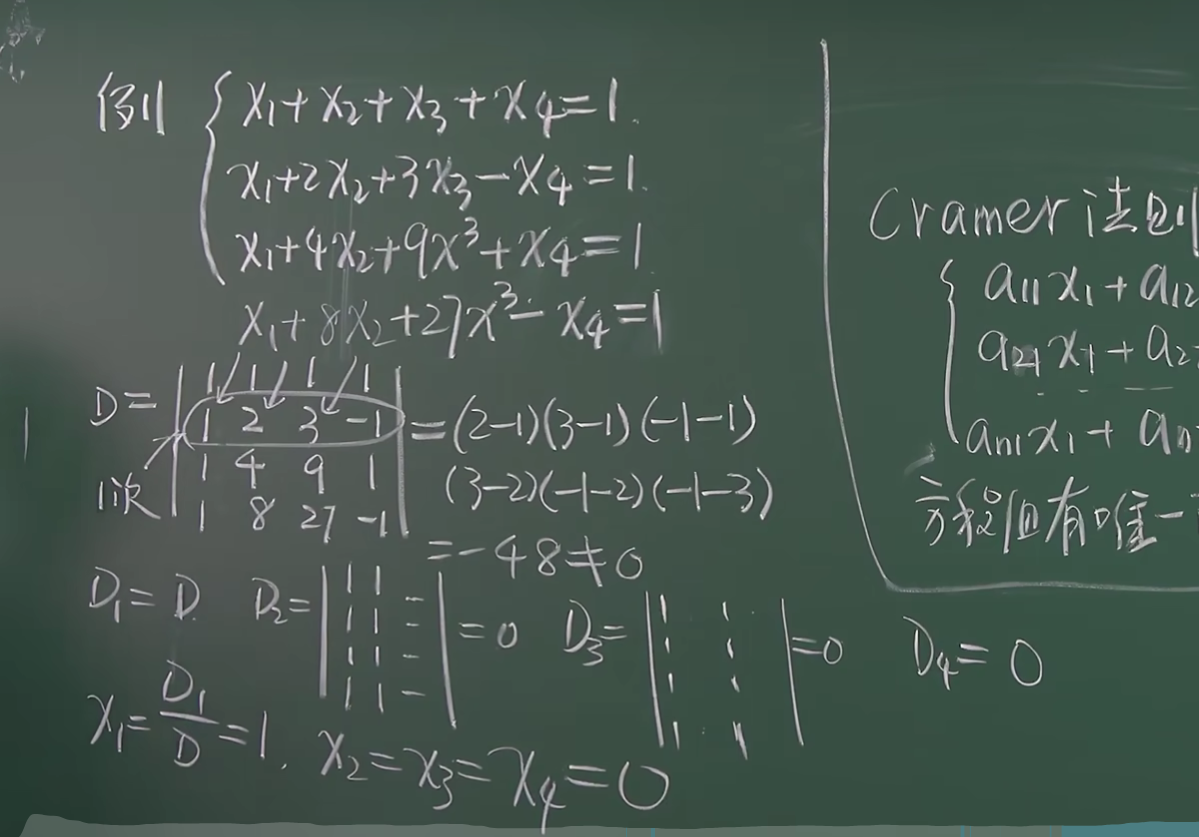 例1 { x₁+x₂+x₃+x₄=1.
x₁+2x₂+3x₃-x₄=1.
x₁+4x₂+9x³+x₄=1.
x₁+8x₂+27x³-x₄=1
D= | 1 1 1 1 |
| 1 2 3 -1 | =(2-1)(3-1)(-1-1)
1次 | 1 4 9 1 | (3-2)(-1-2)(-1-3)
| 1 8 27 -1 |
=-48≠0
D₁=D D₂= | 1 1 - | =0 D₃= | | =0 D₄=0
| 1 1 - |
| 1 1 - |
| 1 1 - |
x₁=D₁/D=1. x₂=x₃=x₄=0
Cramer法则
{ a₁₁x₁+a₁₂
a₂₁x₁+a₂
aₙ₁x₁+aₙ
方程组有唯一